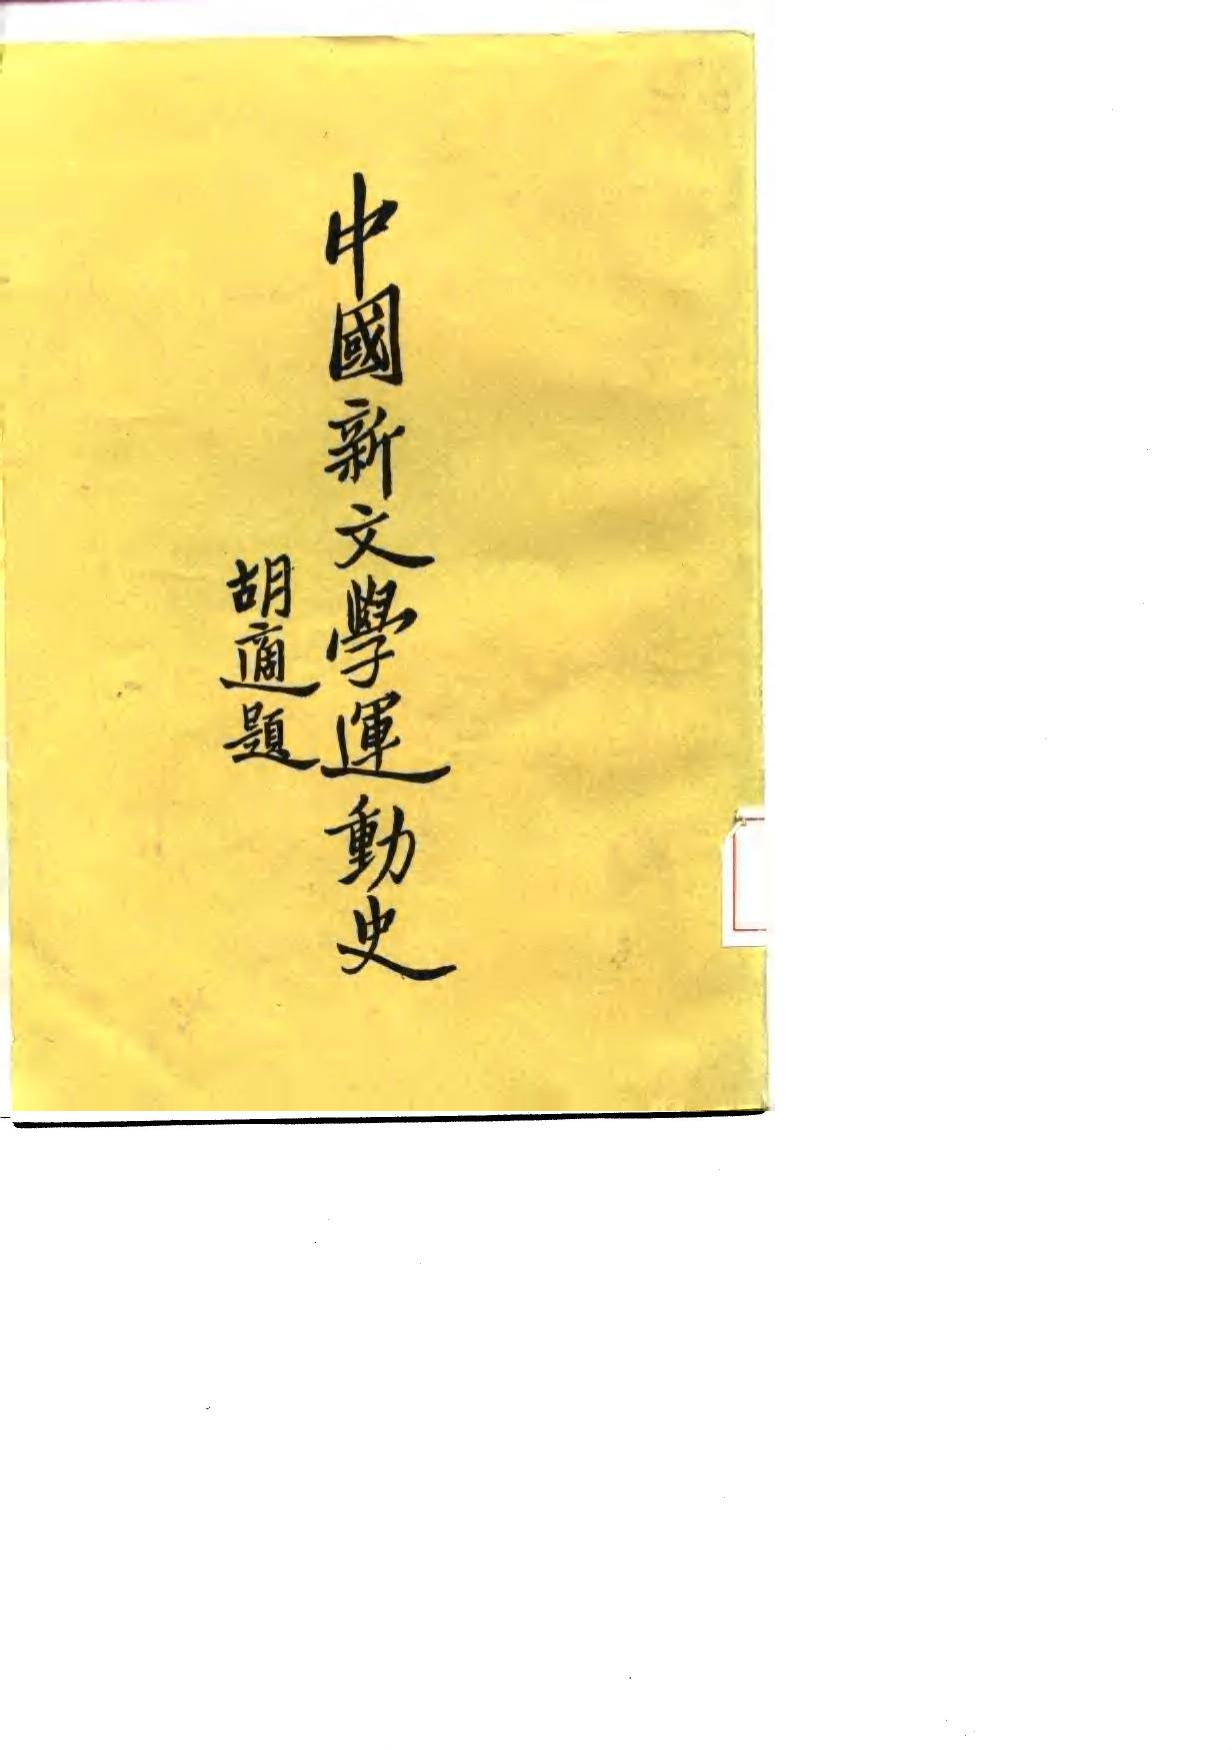 中國新文學運動史
胡適題